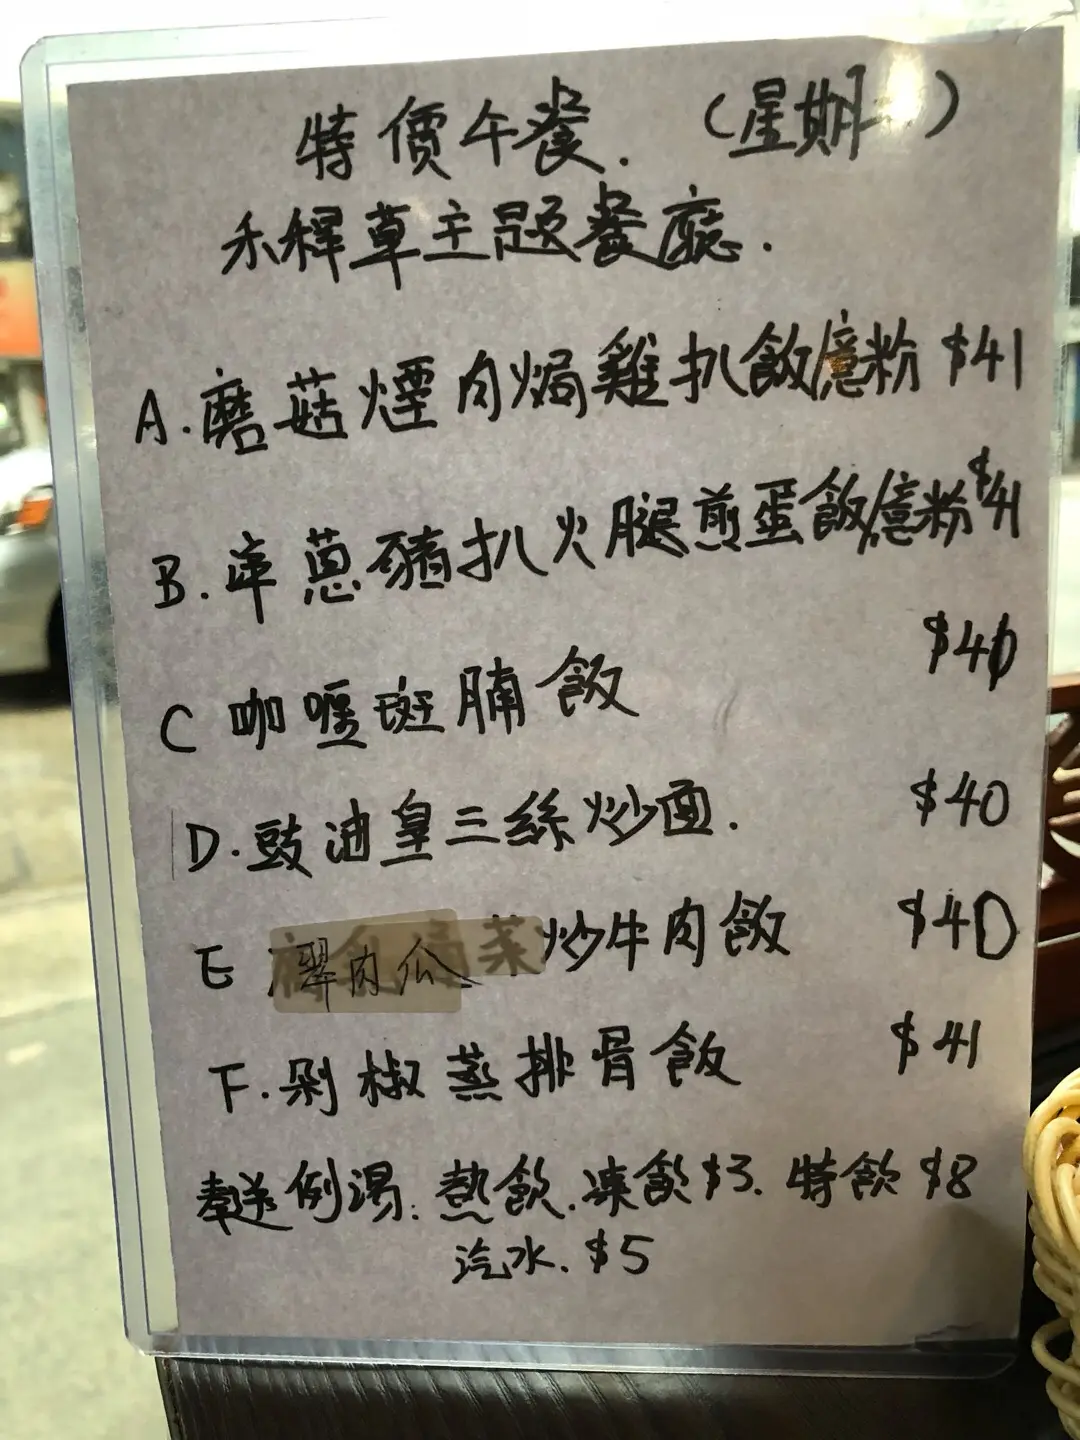 特價午餐. (星期一)
禾稈草主題餐廳.
A.磨菇煙肉焗雞扒飯/意粉 $41
B.洋蔥豬扒火腿煎蛋飯/意粉 $41
C 咖喱斑腩飯 $40
D.豉油皇三絲炒面. $40
E 翠肉瓜炒牛肉飯 $40
F.剁椒蒸排骨飯 $41
奉送例湯. 熱飲. 凍飲$3. 特飲 $8
汽水. $5